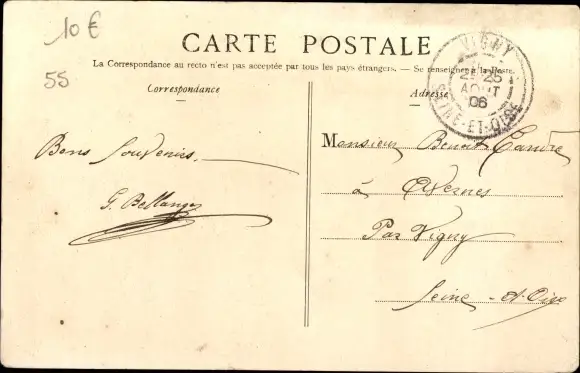 10 €
55
CARTE POSTALE
La Correspondance au recto n'est pas acceptée par tous les pays étrangers. — Se renseigner à la Poste.
Correspondance
Adresse
VIGNY
25
AOUT
06
SEINE-ET-OISE
Bons Souvenirs.
G. Bellanger
Monsieur Benoit
à Avernes
Par Vigny
Seine-et-Oise